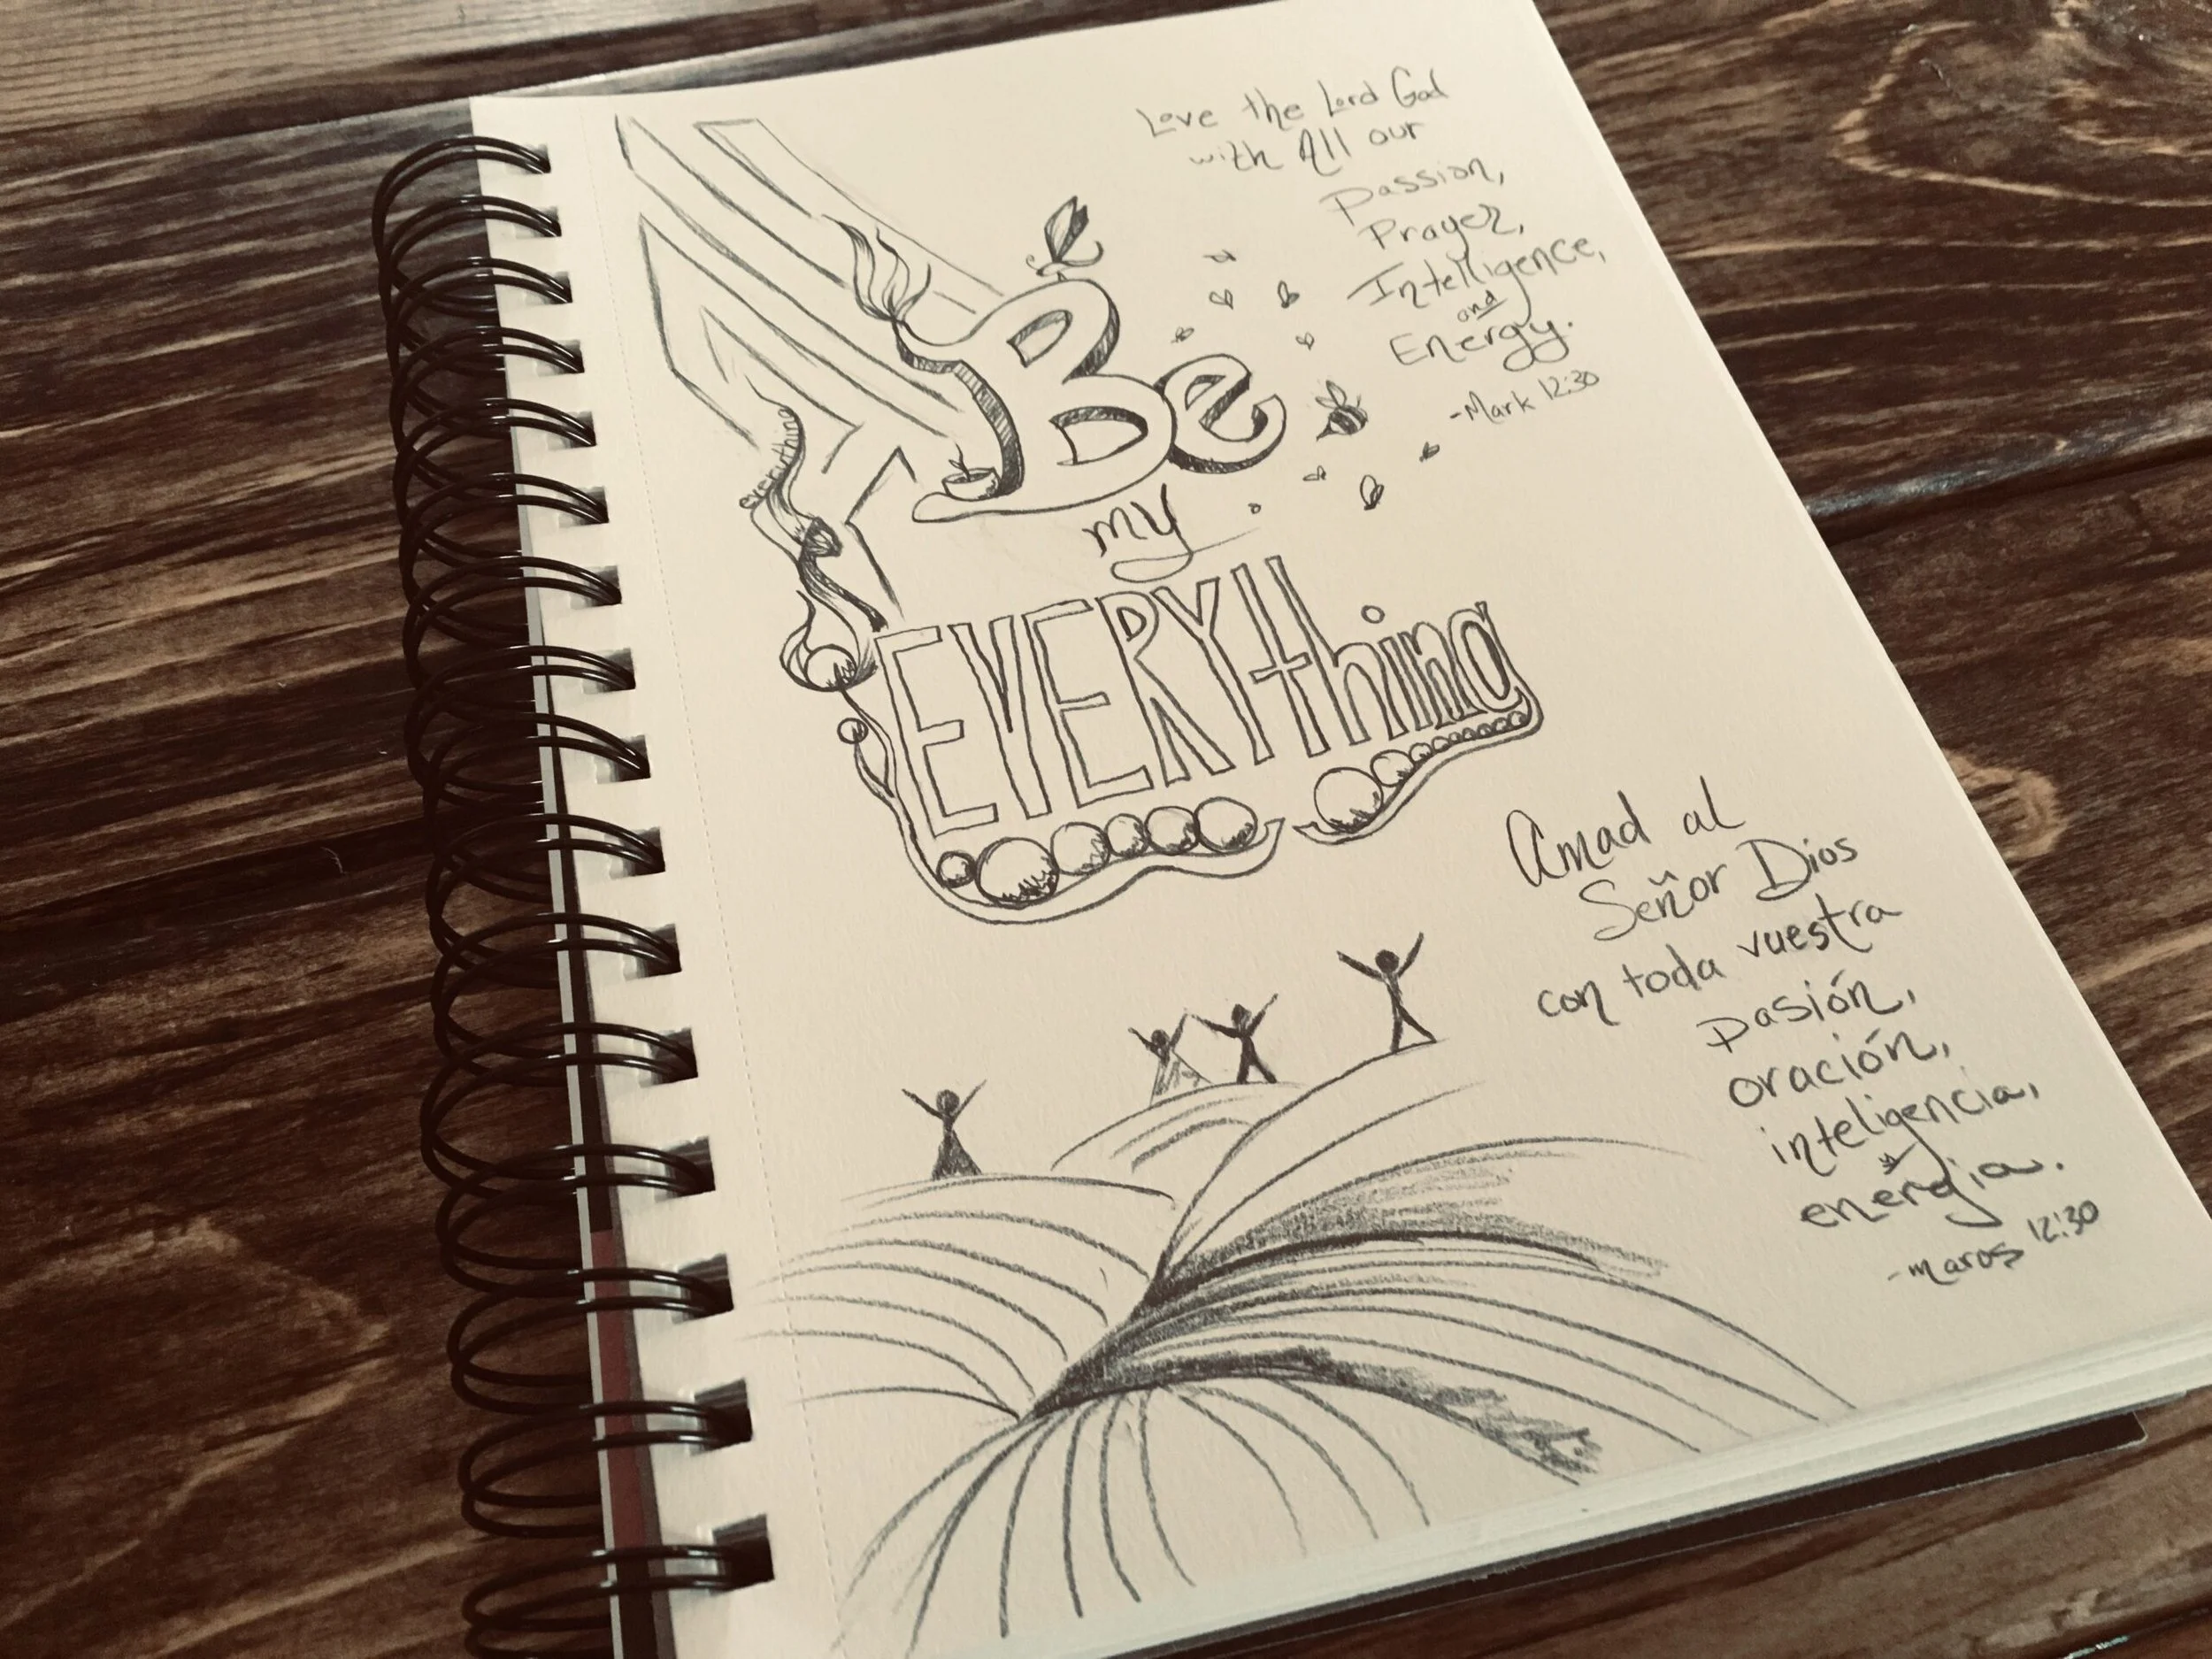 Love the Lord God
with All our
Passion,
Prayer,
Intelligence,
and
Energy.
-Mark 12:30
Be
my
EVERYthing
everything
Amad al
Señor Dios
con toda vuestra
pasión,
oración,
inteligencia,
y
energia.
-marcos 12:30